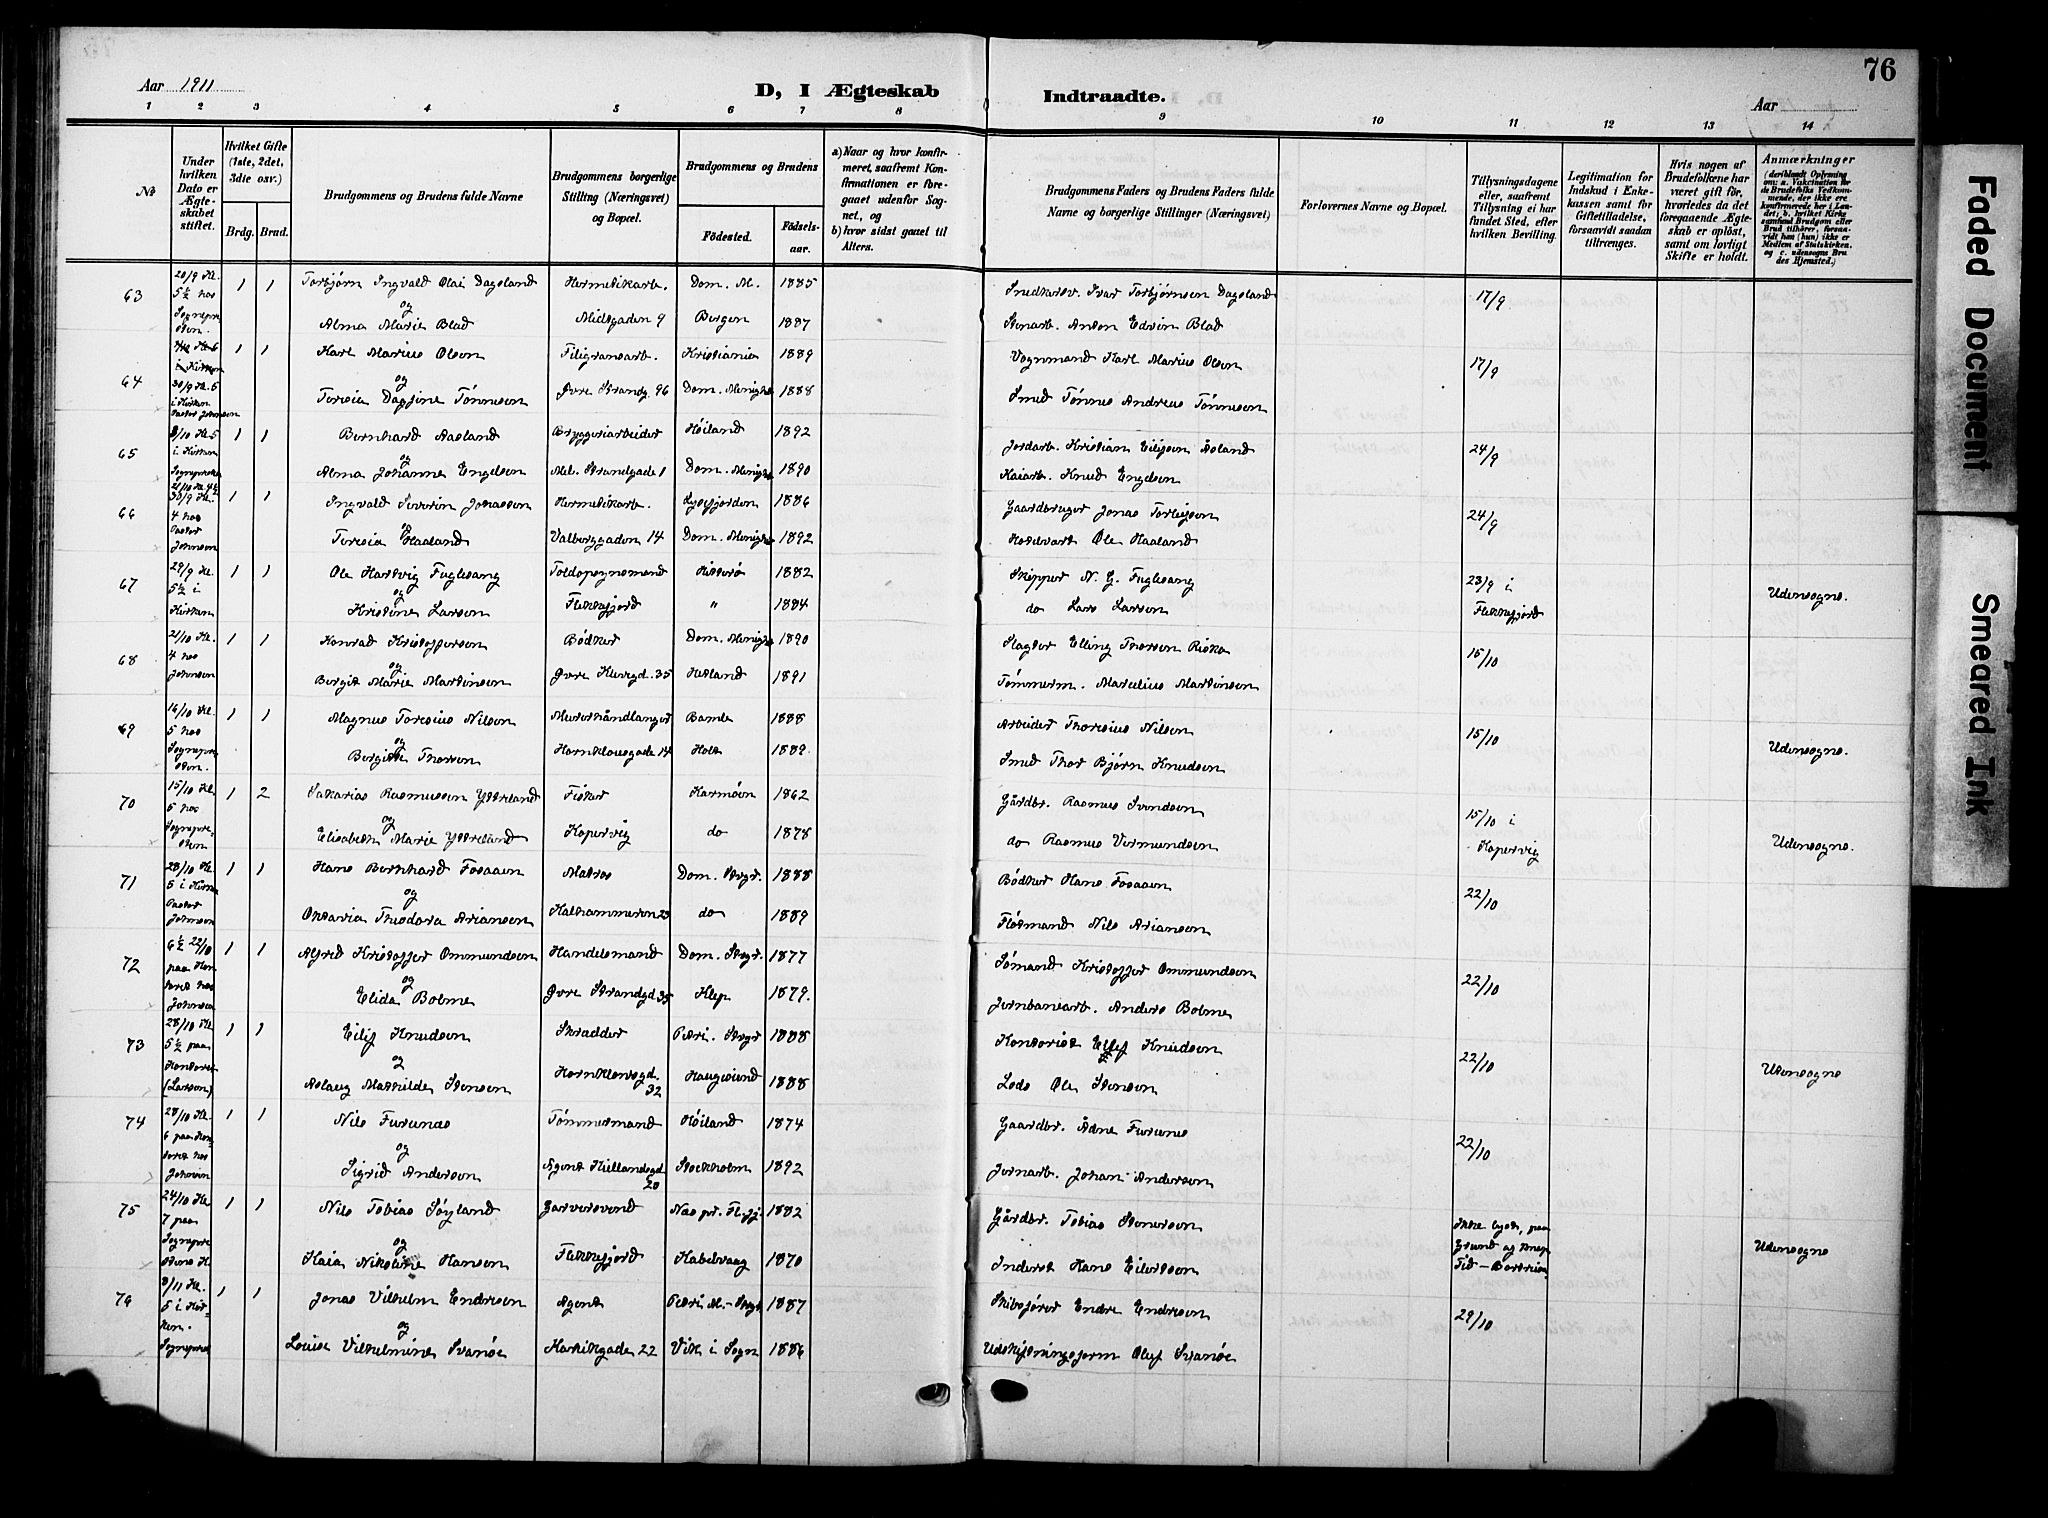 Aar 1911
D, I Ægteskab
Indtraadte.
76
Aar
1 2 3 4 5 6 7 8 9 10 11 12 13 14
No
Under hvilken Dato er Ægteskabet stiftet.
Hvilket Gifte (1ste, 2det, 3die osv.)
Brdg. Brud.
Brudgommens og Brudens fulde Navne
Brudgommens borgerlige Stilling (Næringsvei) og Bopæl.
Brudgommens og Brudens
Fødested.
Fødselsaar.
a) Naar og hvor konfirmeret, saafremt Konfirmationen er foregaaet udenfor Sognet, og
b) hvor sidst gaaet til Alters.
Brudgommens Faders og Brudens Faders fulde Navne og borgerlige Stillinger (Næringsvei)
Forlovernes Navne og Bopæl.
Tillysningsdagene eller, saafremt Tillysning ei har fundet Sted, efter hvilken Bevilling.
Legitimation for Indskud i Enkekassen samt for Giftetilladelse, forsaavidt saadan tiltrænges.
Hvis nogen af Brudefolkene har været gift før, hvorledes da det foregaaende Ægteskab er opløst, samt om lovligt Skifte er holdt.
Anmærkninger
63 20/9 Kl. 5½ hos Sognepresten. 1 1 Torbjørn Ingvald Olai Dagsland Hermetikarb. Dom. M. 1885 Smedkarsv. Ivar Torbjørnsen Dagsland 17/9
og
Alma Marie Blad Midtgaden 9 Bergen 1887 Stenarb. Anton Edvin Blad
64 30/9 Kl. 5 i Kirken Pastor Johnsen 1 1 Karl Marius Olsen Filigransarb. Kristiania 1889 Vognmand Karl Marius Olsen 17/9
og
Teresia Dagfine Tønnesen Øvre Strandg. 96 Dom. Menighed 1888 Smed Tønnes Andreas Tønnesen
65 i Kirken 1 1 Bernhard Aasland Bryggeriarbeider Høiland 1892 Jordarb. Kristian Eiljsen Åsland 24/9
og
Alma Johanne Engelsen Mel. Strandgade 1 Dom. Menighed 1890 Kaiarb. Knud Engelsen
66 30/9 Kl. 4 hos Pastor Johnsen 1 1 Ingvald Severin Jonassen Hermetikarb. Lysefjorden 1886 Gaardbruger Jonas Torleifsen 24/9
og
Teresia Haaland Valberggaden 14 Dom. Menighed 1892 Hotelvært Ole Haaland
67 29/9 Kl. 5½ i Kirken 1 1 Ole Hartvig Fuglesang Toldopsynsmand Hitterø 1882 Skipper N. G. Fuglesang 23/9 i Flekkefjord Udensogns.
og
Kristine Larsen Flekkefjord " 1884 do Lars Larsen
68 21/10 Kl. 4 hos Johnsen 1 1 Konrad Kristoffersen Bødker Dom. Menighed 1890 Slagter Elling Thorsen Riska 15/10
og
Bergit Marie Martinsen Øvre Klevgd. 35 Hetland 1891 Tømmerm. Marselius Martinsen
69 16/10 Kl. 5 hos Sognepresten. 1 1 Magnus Teresius Nilsen Murerhåndlanger Bamle 1888 Arbeider Thoresius Nilsen 15/10 Udensogns.
og
Bergitte Thorsen Hornklovsgade 14 Holt 1889. Smed Thor Bjørn Knudsen
70 15/10 Kl. 5 hos Sognepresten 1 2 Sakarias Rasmussen Ytreland Fisker Karmøen 1862 Gårdbr. Rasmus Svendsen 15/10 i Kopervig Udensogns.
og
Elisabeth Marie Ytreland Kopervig do 1878 do Rasmus Vermundsen
71 28/10 Kl. 5 i Kirken Pastor Johnsen 1 1 Hans Bernhard Fosaaen Matros Dom. Stvgr. 1888 Bødker Hans Fosaaen 22/10
og
Oktavia Theodora Ariansen Kalhammeren 23 do 1889 Fløtmand Nils Ariansen
72 6½ 22/10 paa Kontoret hos Johnsen 1 1 Alfred Kristoffer Ommundsen Handelsmand Dom. Stvgr. 1877 Sømand Kristoffer Ommundsen 22/10
og
Elida Bolme Øvre Strandgd. 35 Klep 1879. Jernbanearb. Anders Bolme
73 28/10 Kl 5½ paa Kontoret (Larsen) 1 1 Eilif Knudsen Skradder Petri. Stvgr 1888 Kontorist Knudsen 22/10 Udensogns
og
Aslaug Mathilde Stensen Hornklovsgd. 32 Haugesund 1888 Lods Ole Stensen
74 28/10 Kl. 6 paa Kontoret hos Johnsen 1 1 Nils Furenes Tømmermand Høiland 1874 Gaardbr. Ådne Furenes 22/10
og
Sigrid Andersen Agent Kiellandsgd. 20 Stockholm 1892 Jernarb. Johan Andersen
75 24/10 Kl 7 paa 1 1 Nils Tobias Søyland Garversvend Nes pr. Flkfj. 1882 Gårdbr. Tobias Stenersen Ikke lyst, paa Grund af knap Tid – Udensogns
og
Kaia Nikoline Hansen Flekkefjord Kabelvaag 1870 Inderst Hans Eilertsen
76 8/11 Kl. 5 i Kirken. Sognepresten 1 1 Jonas Vilhelm Endresen Agent Petri M.- Stvgr 1887 Skibsfører Endre Endresen 29/10
og
Louise Vilhelmine Svanøe Harkiksgade 22 Vik i Sogn 1886 Udskiftningsform Oluf Svanøe
Faded Document
Smeared Ink